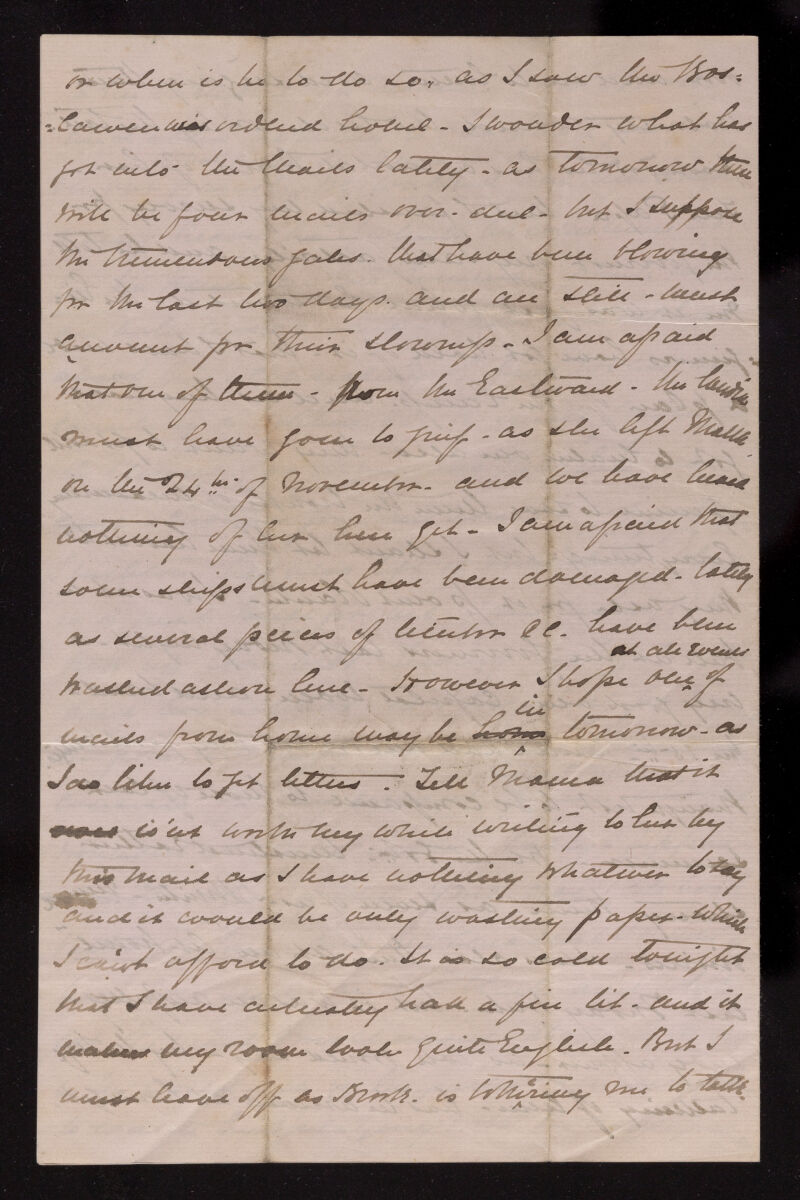 or when is he to do so, as I saw the Bos=
=cawen was ordered home - I wonder what has
got into the Mails lately - as tomorrow there
will be four mails over-due - but I suppose
the tremendous gales. that have been blowing
for the last two days. and are still - must
account for their slowness - I am afraid
that one of them - from the Eastward - the
must have gone to grief - as she left Malta
on the 24th. of November - and we have heard
nothing of her here yet - I am afraid that
some ships must have been damaged - lately
as several pieces of timber &c. have been
at all events
washed ashore here - However I hope one of
in
mails from home may be home tomorrow - as
I do like to get letters. Tell Mama that it
is'nt worth my while writing to her by
this mail as I have nothing whatever to say
and it would be only wasting paper - which
I can't afford to do. It is so cold tonight
that I have actually had a fire lit - and it
makes my room look quite English. But I
must leave off as Brook. is bothering me to talk